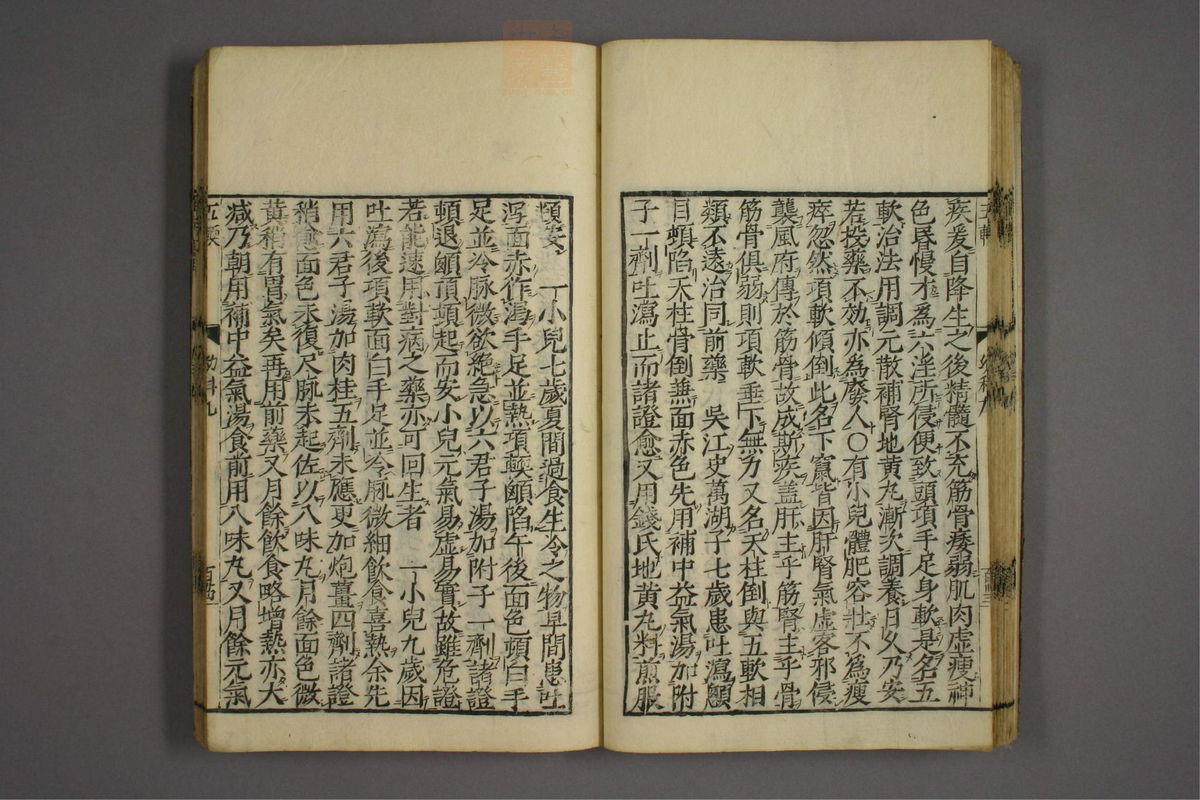 疾爰自降生之後精髓不充筋骨痿弱肌肉虛瘦神
色昏慢才爲六淫所侵便致頭項手足身軟是名五
軟治法用調元散補腎地黃丸漸次調養日久乃安
若投藥不効亦爲癈人〇有小兒體肥容壯不爲瘦
瘁忽然項軟傾倒此名下竄皆因肝腎氣虛客邪侵
襲風府傳於筋骨故成斯疾蓋肝主乎筋腎主乎骨
筋骨俱弱則項軟垂下無力又名天柱倒與五軟相
類不遠治同前藥 吳江史萬湖子七歲患吐瀉
目頓陷天柱骨倒兼面赤色先用補中益氣湯加附
子一劑吐瀉止而諸證愈又用錢氏地黃丸料煎服
頓安 一小兒七歲夏間過食生冷之物早間患吐
瀉面赤作渴手足並熱項軟顱陷午後面色頓白手
足並冷脉微欲絶急以六君子湯加附子一劑諸證
頓退顱頂頓起而安小兒元氣易虛易實故雖危證
若能速用對病之藥亦可回生者 一小兒九歲因
吐瀉後項軟面白手足並冷脉微細飲食喜熱余先
用六君子湯加肉桂五劑未應更加炮薑四劑諸證
稍愈面色未復尺脉未起佐以八味丸月餘面色微
黃稍有胃氣矣再用前藥又月餘飲食略增熱亦大
減乃朝用補中益氣湯食前用八味丸又月餘元氣
幼科九